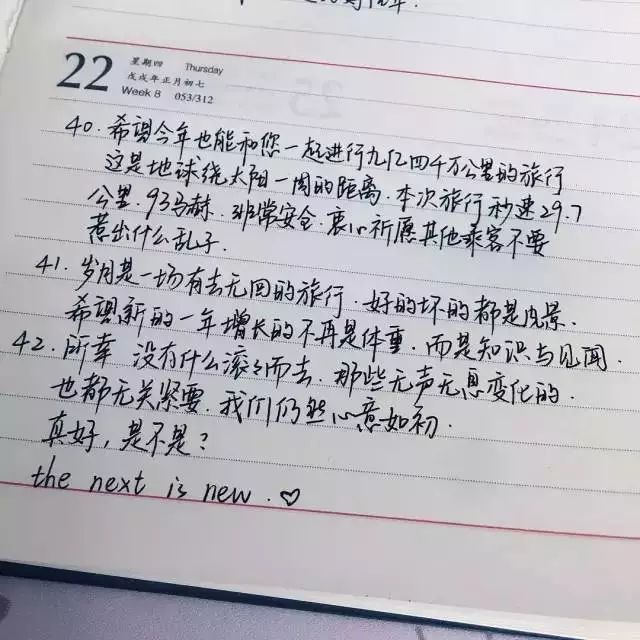 22 星期四 Thursday
戊戌年正月初七
Week 8 053/312
40. 希望今年也能和您一起进行九亿四千万公里的旅行
这是地球绕太阳一周的距离. 本次旅行秒速29.7
公里. 93马赫. 非常安全. 衷心祈愿其他乘客不要
惹出什么乱子.
41. 岁月是一场有去无回的旅行. 好的坏的都是风景.
希望新的一年增长的不再是体重. 而是知识与见闻.
42. 所幸 没有什么滚滚而去. 那些无声无息变化的.
也都无关紧要. 我们仍然心意如初.
真好, 是不是?
the next is new. ♡